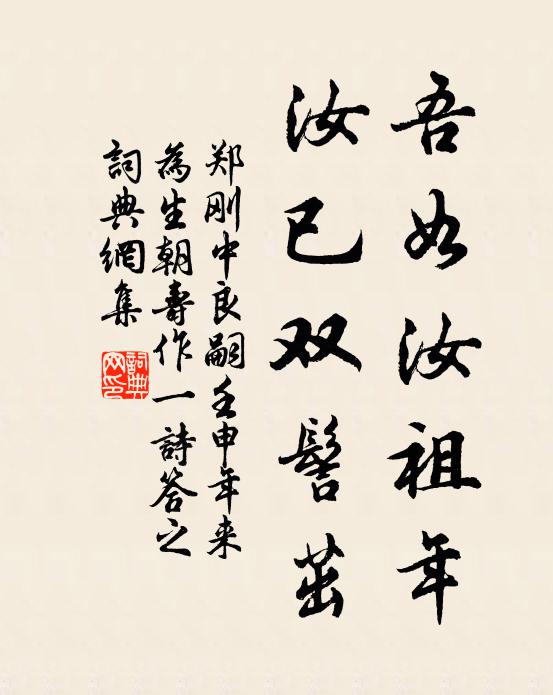 吾如汝祖年
汝已双髻茁
郑刚中良嗣壬申年来
為生朝壽作一詩答之
詞典網集
詞典網印